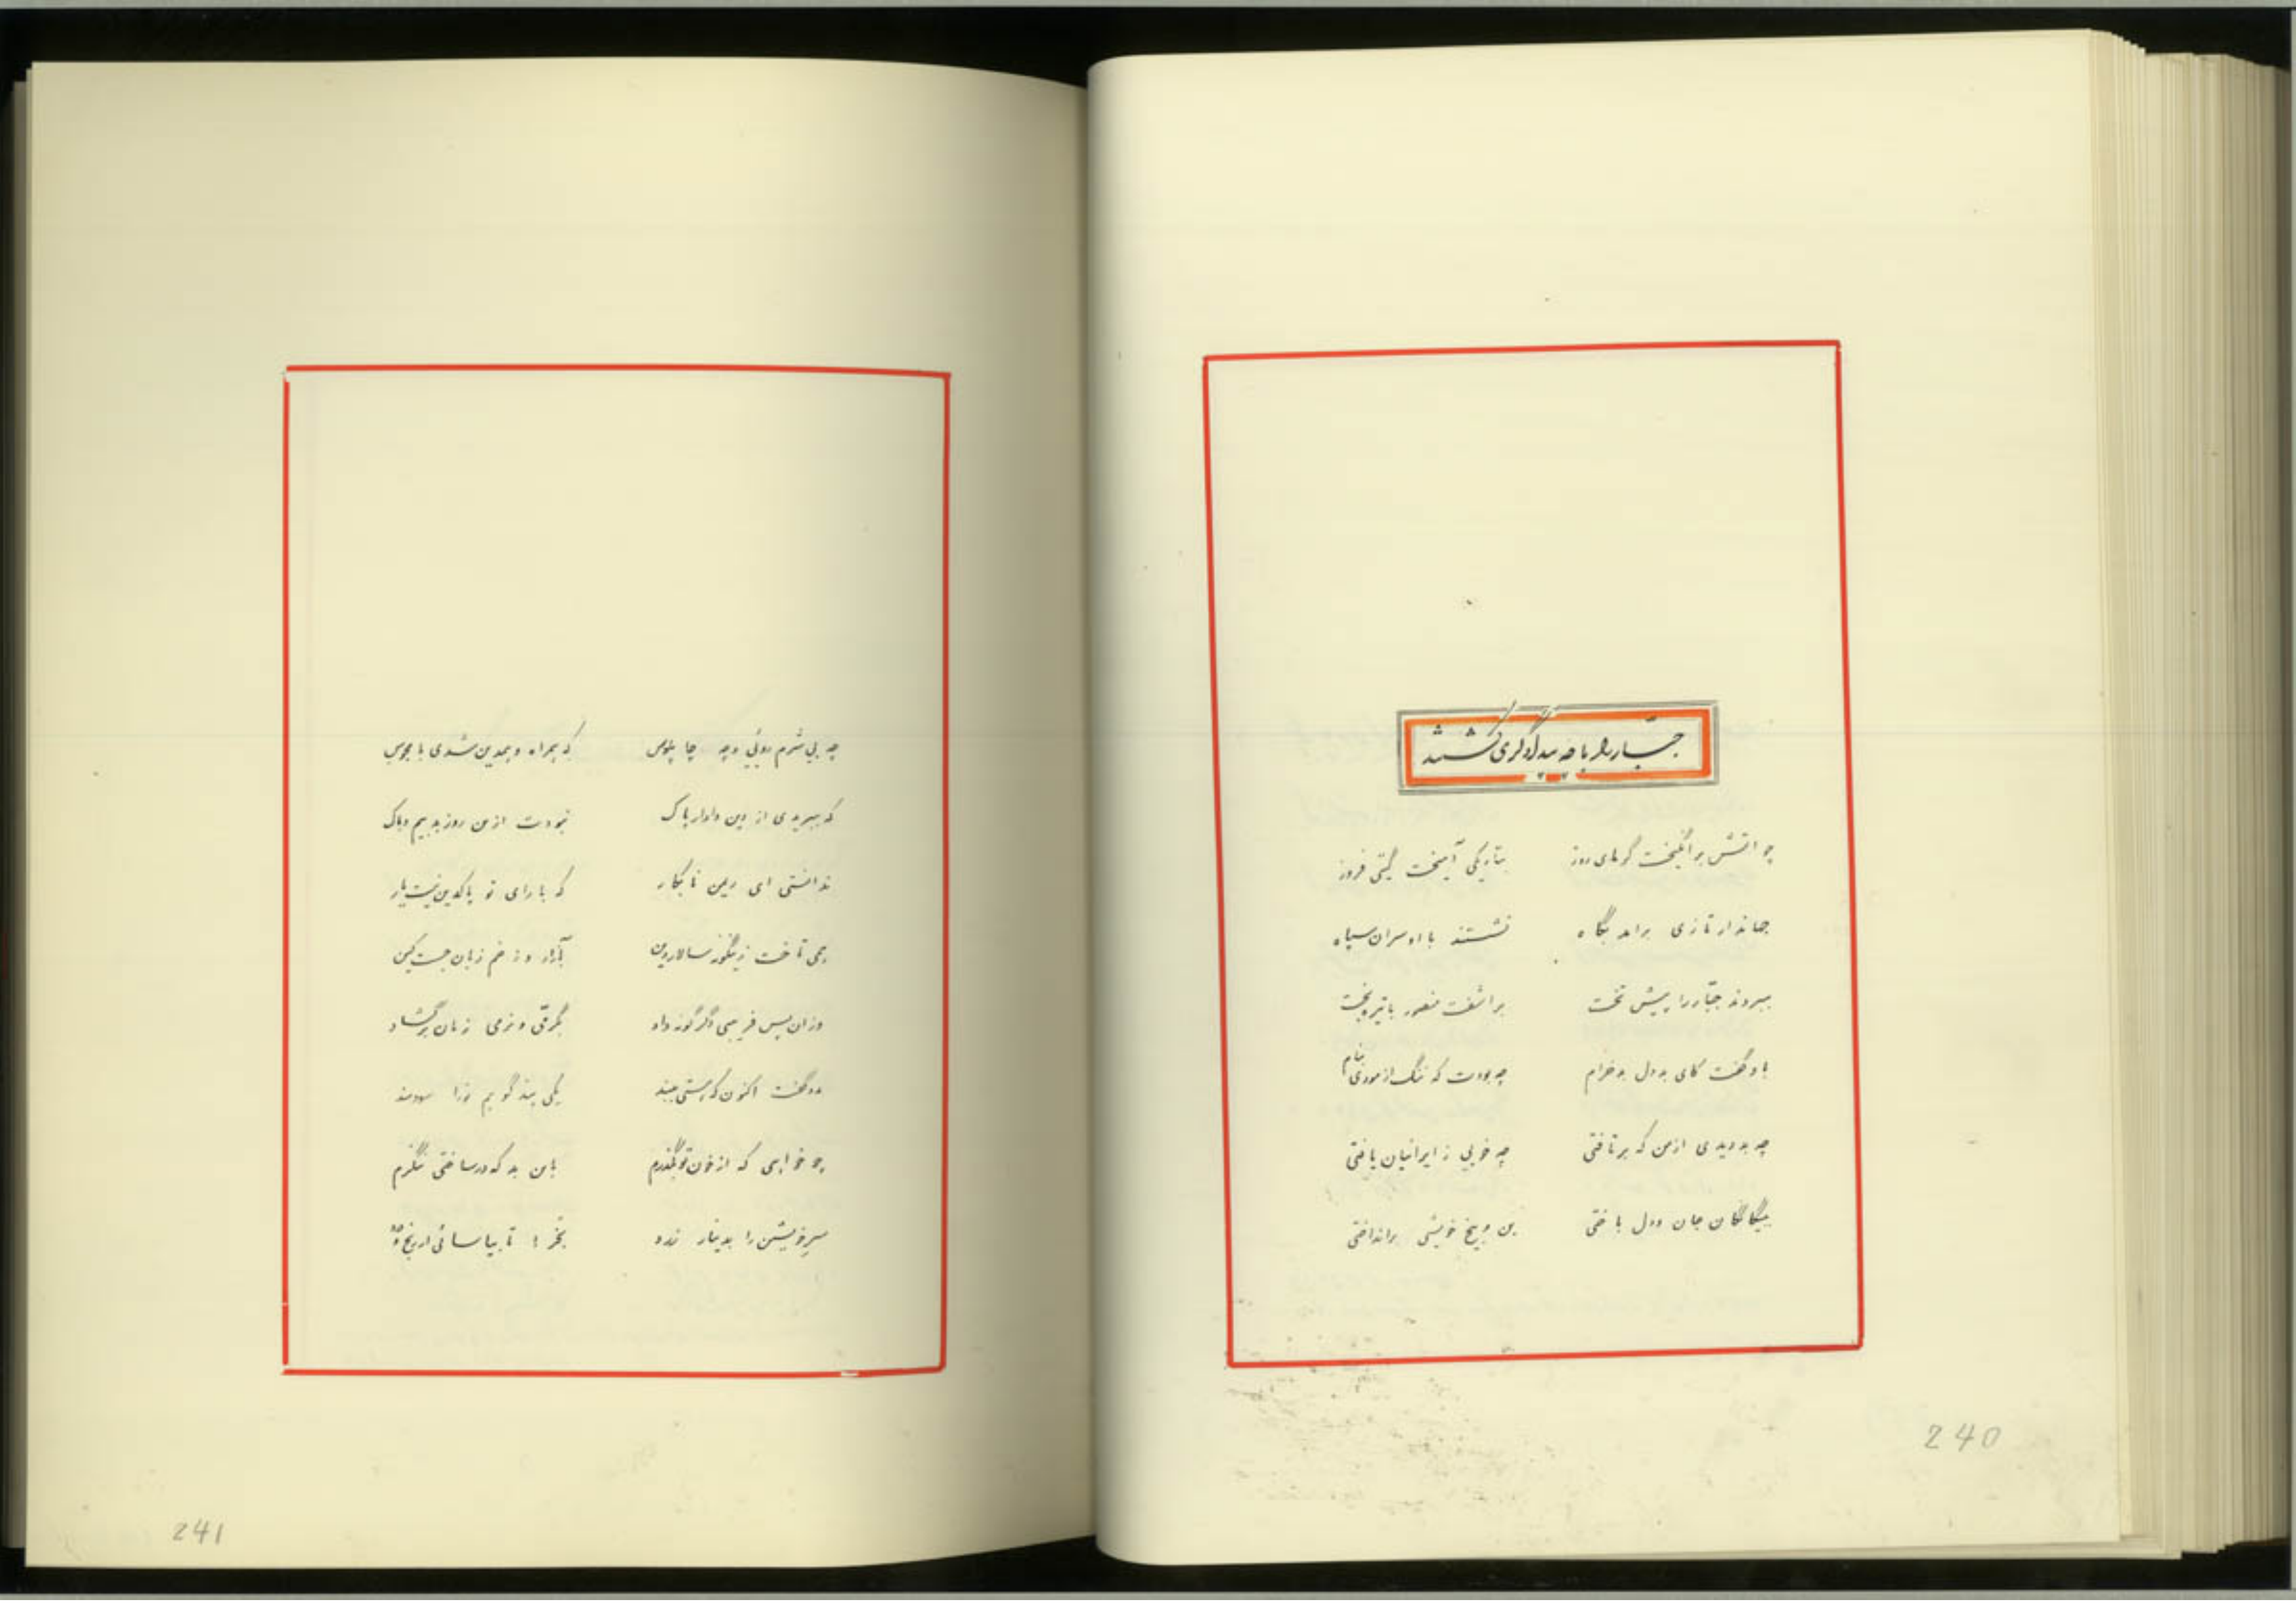 جبّار را با چه بیدادگری کشتند
چو آتش برانگیخت گرمای روز بتاریکی آمیخت گیتی فروز
جهاندار تازی برآمد بگاه نشستند با او سران سپاه
ببردند جبّار را پیش تخت برآشفت منصور با تیره بخت
باو گفت کای بددل بدخرام چه بودت که ننگ آزمودی بنام
چه بد دیدی از من که برتافتی چه خوبی ز ایرانیان یافتی
ببیگانگان جان و دل باختی بن و بیخ خویشی برانداختی
240
چه بی شرم روئی و چه چاپلوس که همراه و همدین شدی با مجوس
که ببریدی از دین دادار پاک نبودت ازین روز بد بیم و باک
ندانستی ای ریمن نابکار که با رای تو پاکدین نیست یار
همی تاخت زینگونه سالار دین بآزار و زخم زبان جست کین
وزان پس فریبی دگرگونه داد بگرمی و نرمی زبان برگشاد
بدو گفت اکنون که هستی ببند یکی پند گویم ترا سودمند
چو خواهی که از خون تو بگذرم باین بد که در ساختی ننگرم
سر خویشتن را بدینار زرد بخر! تا بیاسائی از رنج و درد
241